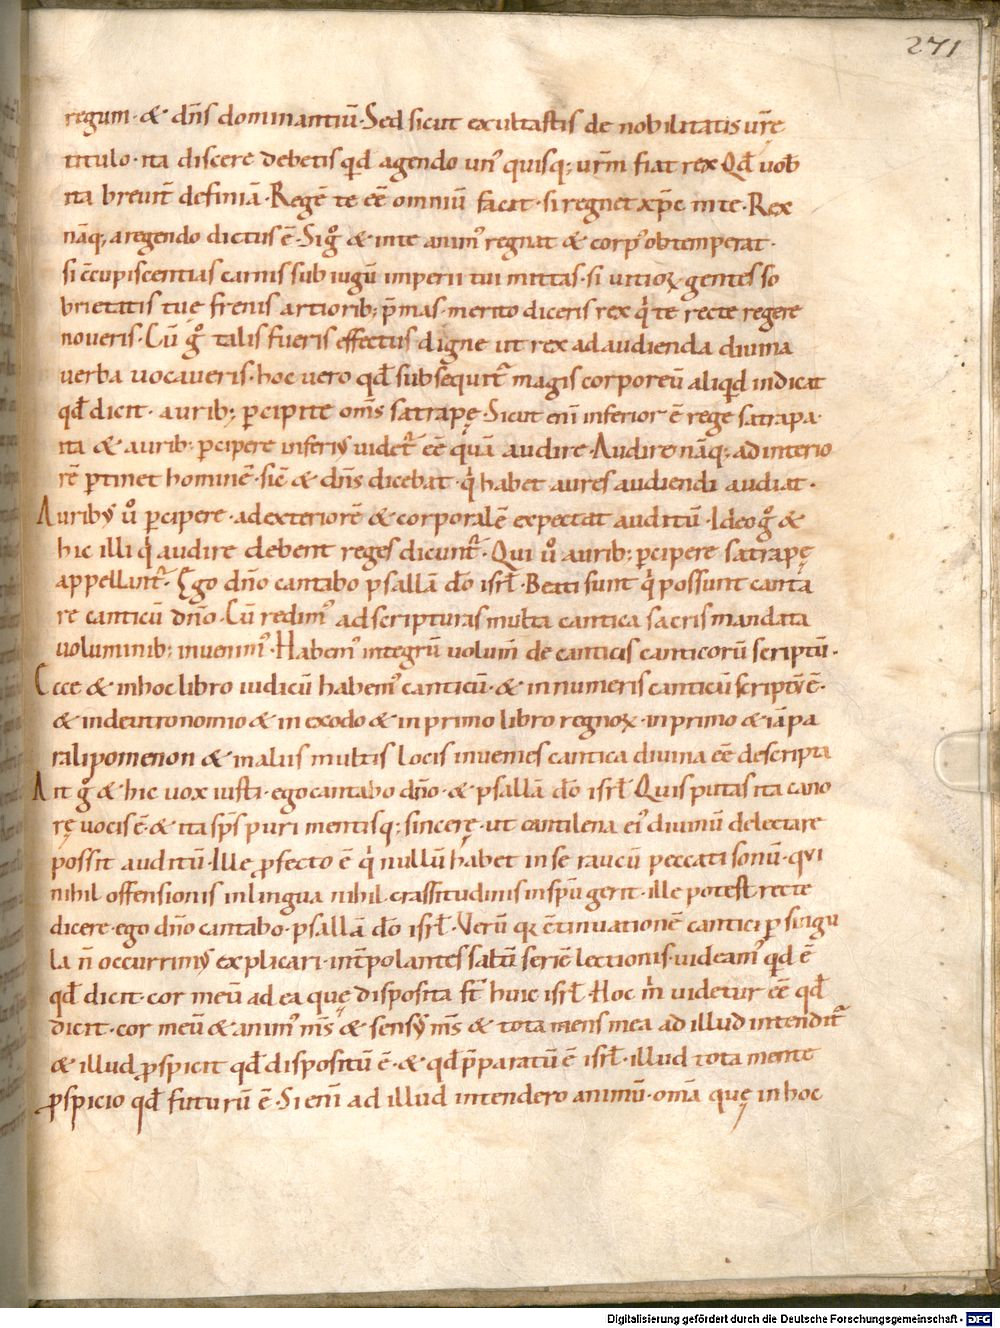 271
regum · & dn̄s dominantiū · Sed sicut exultastis de nobilitatis ur̄e
titulo · ita discere debetis qđ agendo un᾿ quisq; urm̄ fiat rex Qđ uob̄
ita breuit̄ definiā · Regē te eē omniū facit · si regnet xp̄c in te · Rex
nāq; a regendo dictus ē · Si gͦ & in te anim᾿ regnat & corp᾿ obtemperat ·
si ccupiscentias carnis sub iugū imperii tui mittas · si uitioꝝ gentes so
brietatis tuę frenis artiorib; p̄mas · merito diceris rex qͥ te recte regere
noueris · Cū gͦ talis fueris effectus digne ut rex ad audienda diuina
uerba uocaueris · hoc uero qđ subsequit᾿ magis corporeū aliqd indicat
qđ dicit · aurib; ꝑcipite om̄s satrapę · Sicut eni inferior ē rege satrapa ·
ita & aurib; ꝑcipere inferiꝰ uidet᾿ eē quā audire · Audire nāq; ad interio
rē ꝑtinet hominē · sic̄ & dn̄s dicebat · qͥ habet aures audiendi audiat ·
Auribꝰ uͦ ꝑcipere · ad exteriorē & corporalē expectat auditū · Ideo gͦ &
hic illi qͥ audire debent reges dicunt᾿ · Qui uͦ aurib; ꝑcipere satrapę
appellant᾿ · Ego dn̄o cantabo psallā do isrł · Beati sunt qͥ possunt canta
re canticū dn̄o · Cū redim᾿ ad scripturas multa cantica sacris mandata
uoluminib; inuenim᾿ · Habem᾿ integrū uolum̄ de canticis canticorū scriptū ·
Ecce & in hoc libro iudicū habem᾿ canticū · & in numeris canticū scriptꝰ ē ·
& in deutronomio & in exodo & in primo libro regnoꝝ · in primo & iā pa
ralipomenon & in aliis multis locis inuenies cantica diuina eē descripta
Ait gͦ & hic uox iusti · ego cantabo dn̄o · & psallā do isrł Quis putas ita cano
rę uocis ē · & ita sp̄s puri mentisq; sincerę · ut cantilena ei᾿ diuinū delectare
possit auditū · Ille ꝓfecto ē qͥ nullū habet in se raucū peccati sonū · qui
nihil offensionis in lingua nihil crassitudinis in sp̄u gerit · ille potest recte
dicere · ego dn̄o cantabo · psallā do isrł · Verū qꝛ c̄tinuationē cantici ꝑ singu
la n̄ occurrimꝰ explicari · int̄polantes saltū seriē lectionis · uideam᾿ qd ē
qđ dicit · cor meū ad ea quę disposita st̄ huic isrł · Hoc mͥ uidetur eē qđ
dicit · cor meū & anim᾿ ms̄ & sensꝰ ms̄ & tota mens mea ad illud intendit᾿
& illud ꝓspicit qđ dispositū ē · & qđ p̄paratū ē isrł · illud tota mente
ꝓspicio qđ futurū ē · Si eni ad illud intendero animū · om̄a quę in hoc
Digitalisierung gefördert durch die Deutsche Forschungsgemeinschaft - DFG